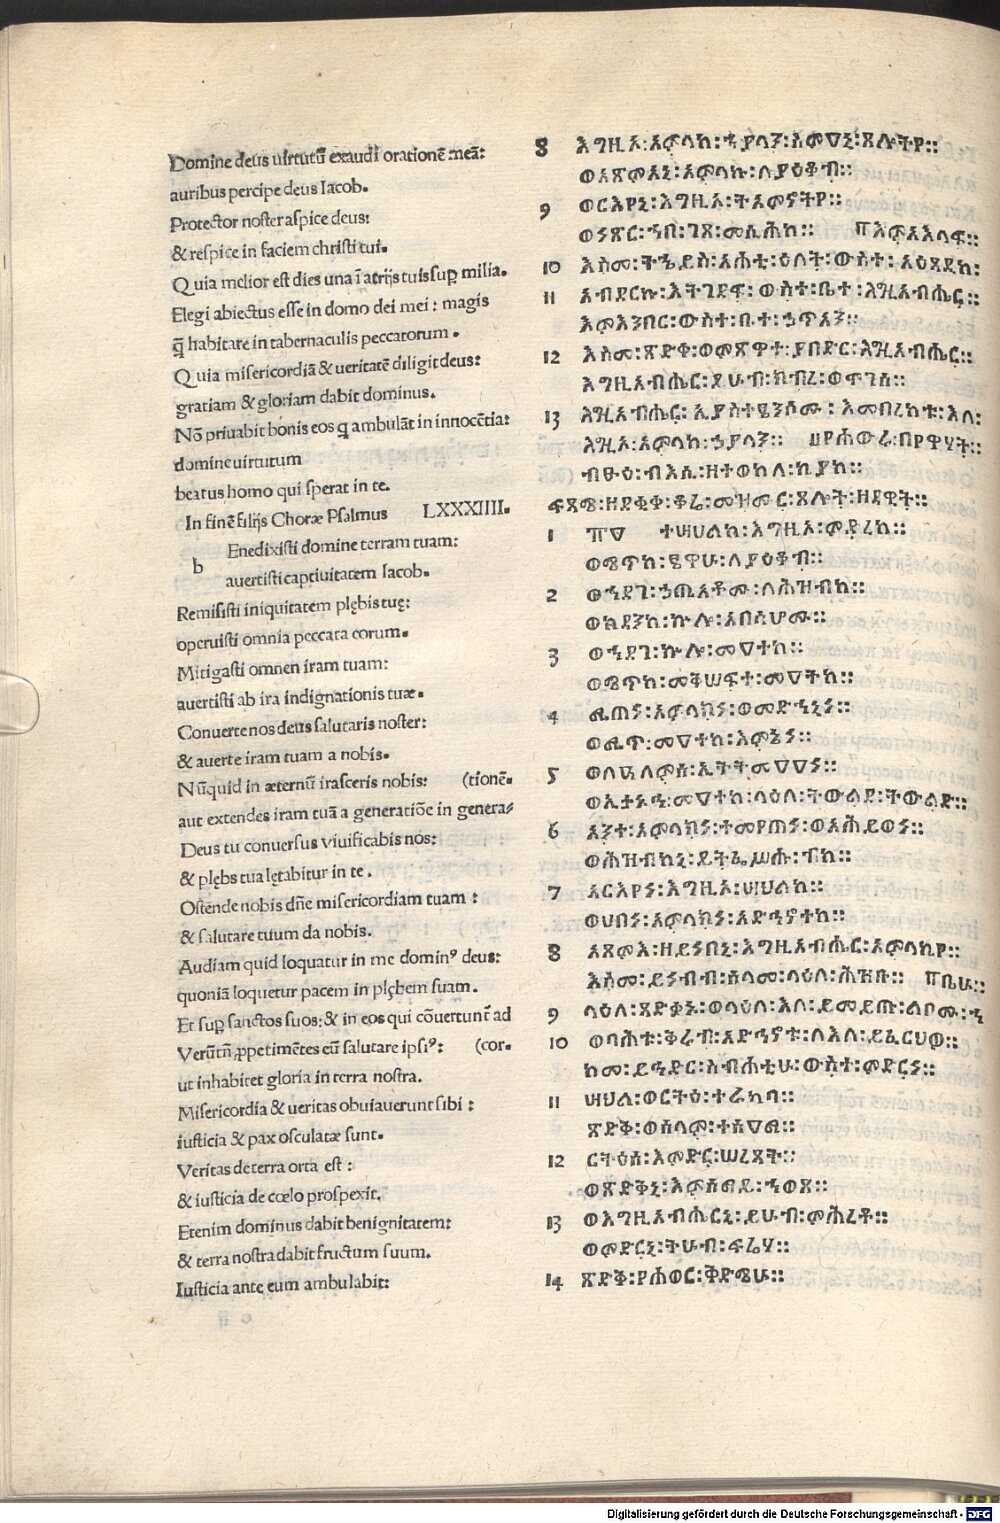 Domine deus uirtutū exaudi orationē meā:
auribus percipe deus Iacob.
Protector noster aspice deus:
& respice in faciem christi tui.
Quia melior est dies una ī atrijs tuis sup̱ milia.
Elegi abiectus esse in domo dei mei: magis
q̄ habitare in tabernaculis peccatorum.
Quia misericordiā & ueritatē diligit deus:
gratiam & gloriam dabit dominus.
Nō priuabit bonis eos q ambulāt in innocētia:
domine uirtutum
beatus homo qui sperat in te.
In finē filijs Choræ Psalmus LXXXIIII.
b Enedixisti domine terram tuam:
auertisti captiuitatem Iacob.
Remisisti iniquitatem plębis tuę:
operuisti omnia peccata eorum.
Mitigasti omnen iram tuam:
auertisti ab ira indignationis tuæ.
Conuerte nos deus salutaris noster:
& auerte iram tuam a nobis.
Nūquid in æternū irasceris nobis: (tionē.
aut extendes iram tuā a generatiōe in genera⸗
Deus tu conuersus viuificabis nos:
& plębs tua lętabitur in te.
Ostende nobis dñe misericordiam tuam:
& salutare tuum da nobis.
Audiam quid loquatur in me dominꝰ deus:
quoniā loquetur pacem in plębem suam.
Et sup̱ sanctos suos: & in eos qui cōuertunt̄ ad
Verūtñ ꝓpe timētes eū salutare ipsiꝰ: (cor.
ut inhabitet gloria in terra nostra.
Misericordia & ueritas obuiauerunt sibi:
iusticia & pax osculatæ sunt.
Veritas de terra orta est:
& iusticia de cœlo prospexit.
Etenim dominus dabit benignitatem:
& terra nostra dabit fructum suum.
Iusticia ante eum ambulabit:
8 እግዚአ፡አምላከ፡ኀያላን፡ስምዐኒ፡ጸሎትየ፡፡
ወአጽምአኒ፡አምላኩ፡ለያዕቆብ፡፡
9 ወርእየኒ፡እግዚአ፡ትእምኖትየ፡፡
ወነጽር፡ኀበ፡ገጸ፡መሲሕከ፡፡ እምእእላፍ፡፡
10 እስመ፡ትኄይስ፡አሐቲ፡ዕለት፡ውስተ፡አዕጻዲከ፡
11 አብደርኩ፡እትገደፍ፡ውስተ፡ቤተ፡እግዚአብሔር፡፡
እምእንበር፡ውስተ፡ቤተ፡ኃጥአን፡፡
12 እስመ፡ጽድቀ፡ወምጽዋተ፡ያበድር፡እግዚአብሔር፡፡
እግዚአብሔር፡ይሁብ፡ክብረ፡ወሞገሰ፡፡
13 እግዚአብሔር፡ኢያስተፄንሶሙ፡እምበረከቱ፡እለ፡
እግዚአ፡አምላከ፡ኃያላን፡፡ የሐውሩ፡በየዋሃት፡፡
ብፁዕ፡ብእሲ፡ዘተወከለ፡ኪያከ፡፡
ፍጻሜ፡ዘደቂቀ፡ቆሬ፡መዝሙር፡ጸሎት፡ዘዳዊት፡፡
1 ተሣህለከ፡እግዚአ፡ምድረከ፡፡
ወሜጥከ፡ፄዋሁ፡ለያዕቆብ፡፡
2 ወኀደገ፡ኃጢአቶሙ፡ለሕዝብከ፡፡
ወከደንከ፡ኵሎ፡አበሳሆሙ፡፡
3 ወኀደገ፡ኵሎ፡መዐተከ፡፡
ወሜጥከ፡መቅሠፍተ፡መዐትከ፡፡
4 ሚጠነ፡አምላክነ፡ወመድኀኒነ፡፡
ወሚጥ፡መዐተከ፡እምኔነ፡፡
5 ወለዓለምሰ፡ኢትትመዐዐነ፡፡
መዐተከ፡ላዕለ፡ትውልደ፡ትውልድ፡፡
6 አንተ፡አምላክነ፡ተመየጠነ፡ወአሕይወነ፡፡
ወሕዝብከኒ፡ይትፌሥሑ፡ብከ፡፡
7 አርእየነ፡እግዚአ፡ሣህለከ፡፡
ወሀበነ፡አምላክነ፡አድኅኖተከ፡፡
8 አጽምእ፡ዘይነበኒ፡እግዚአብሔር፡አምላኪየ፡፡
እስመ፡ይነብብ፡ሰላመ፡ላዕለ፡ሕዝቡ፡፡ ቤሁ፡፡
9 ላዕለ፡ጻድቃኑ፡ወላዕለ፡እለ፡ይመይጡ፡ልቦሙ፡ኀ
10 ወባሕቱ፡ቅሩብ፡አድኅኖቱ፡ለእለ፡ይፈርህዎ፡፡
ከመ፡ይኅድር፡ስብሐቲሁ፡ውስተ፡ምድርነ፡፡
11 ሣህል፡ወርትዕ፡ተራከባ፡፡
ጽድቅ፡ወሰላም፡ተሰዐማ፡፡
12 ርትዕሰ፡እምድር፡ሠረጸት፡፡
ወጽድቅኒ፡እምሰማይ፡ሐወጸ፡፡
13 ወእግዚአብሔርኒ፡ይሁብ፡ምሕረቶ፡፡
ወምድርኒ፡ትሁብ፡ፍሬሃ፡፡
14 ጽድቅ፡የሐውር፡ቅድሜሁ፡፡
Digitalisierung gefördert durch die Deutsche Forschungsgemeinschaft - DFG